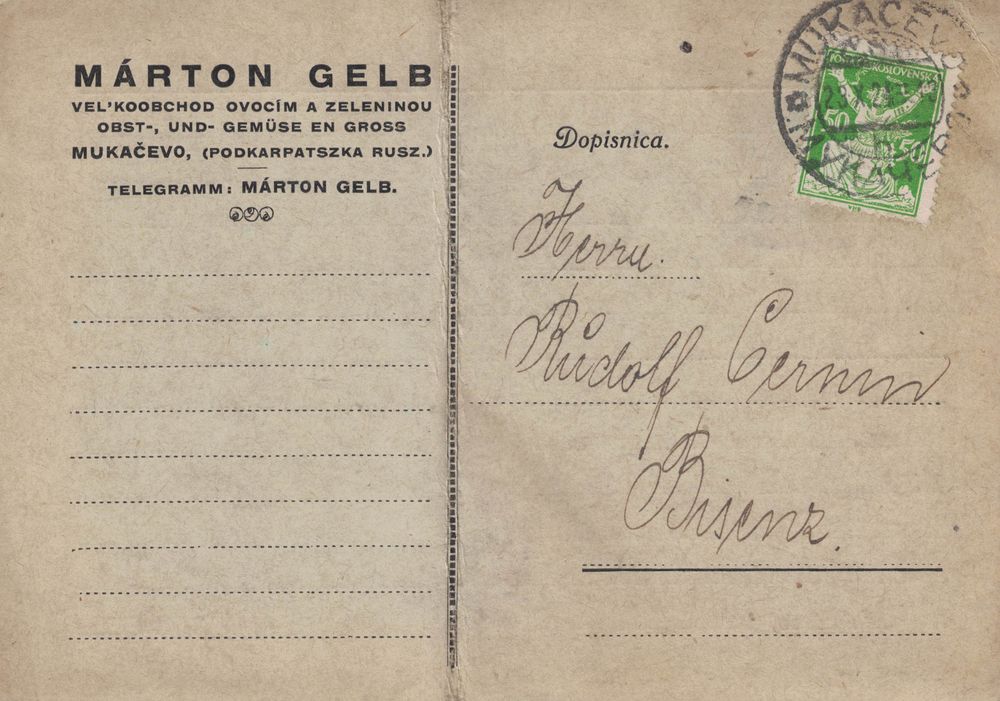 MÁRTON GELB
VEL'KOOBCHOD OVOCÍM A ZELENINOU
OBST-, UND- GEMÜSE EN GROSS
MUKAČEVO, (PODKARPATSZKA RUSZ.)
TELEGRAMM: MÁRTON GELB.
Dopisnica.
MUKAČEVO
50
50
Herrn.
Rudolf Cermin
Bisenz.